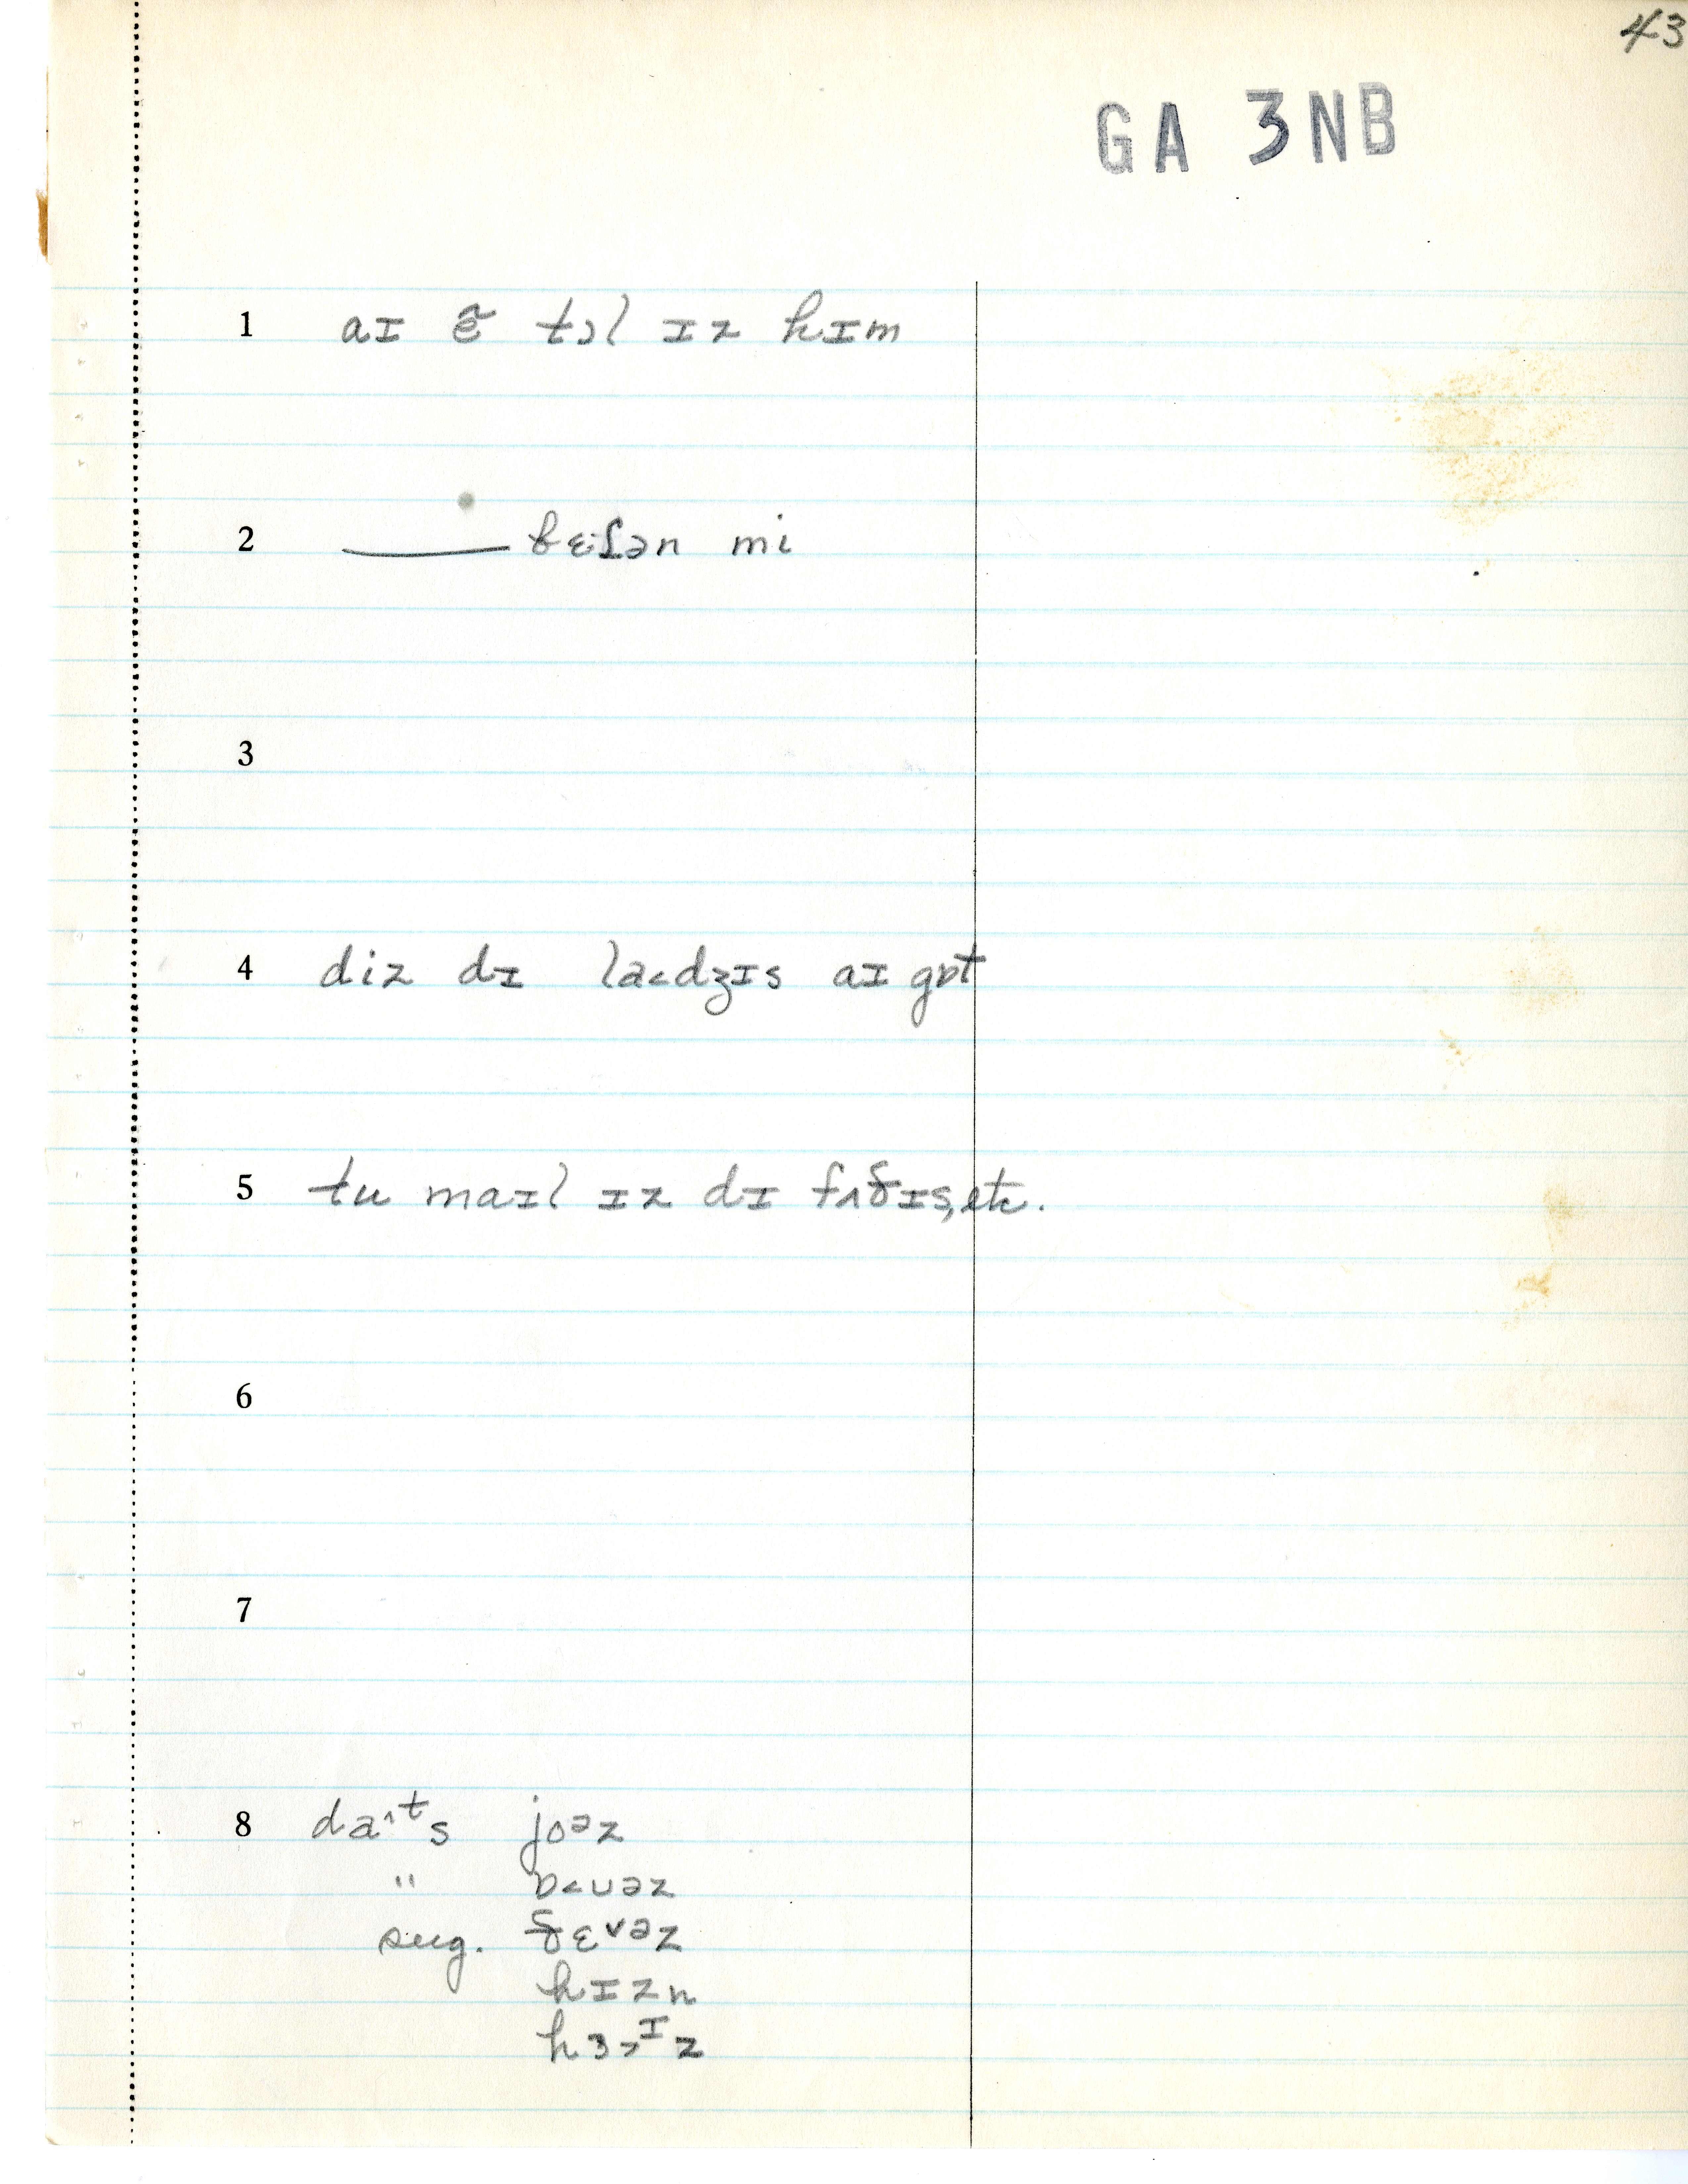 43
GA 3NB
1 aɪ ẽ tɔl ɪz hɪm
2 ——— bɛʃən mi
3
4 diz dɪ la˂dʒɪs aɪ gɒt
5 tu maɪl ɪz dɪ fʌðɪs, etc.
6
7
8 da^ᵗs joᵊz
" ɒ˂uəz
sug. ðɛ˅əz
hɪzn
hɜ˃ᶦz